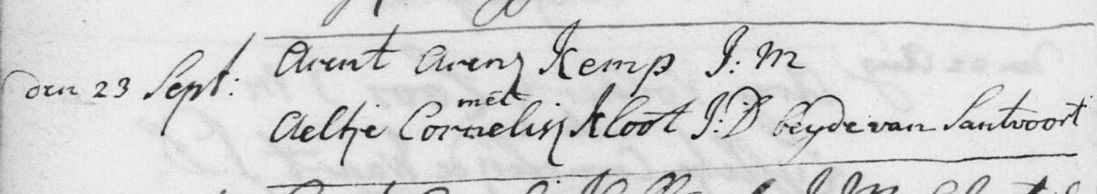 den 23 Sept: Arent Arenz Kemp J: M
met
Aeltje Cornelisz Kloot J: D beyde van Santvoort